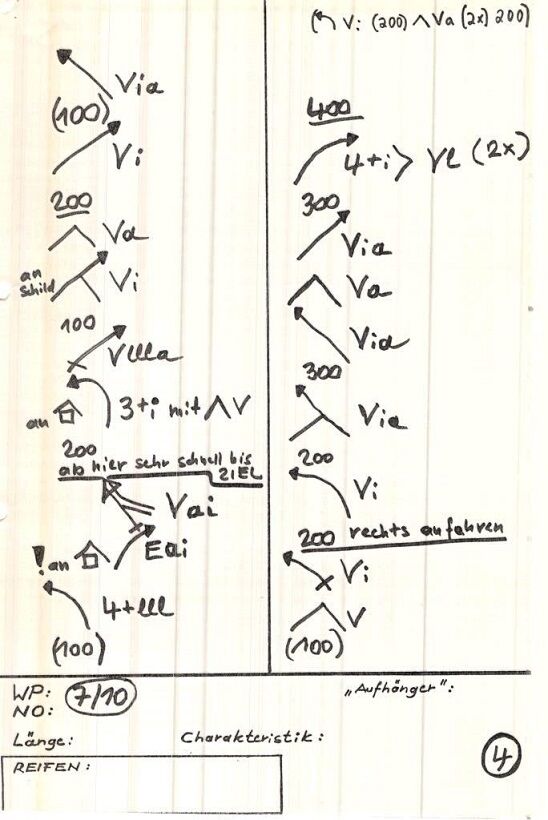 V: (200) ∧ Va (2x) 200)
Via
(100)
Vi
200
Va
an
schild
Vi
100
Vllla
an
3+i mit ∧ V
200
ab hier sehr schnell bis
ZIEL
Vai
! an
Eai
4+lll
(100)
400
4+i > Vl (2x)
300
Via
Va
Via
300
Via
200
Vi
200 rechts anfahren
Vi
V
(100)
WP: 7/10
NO:
„Aufhänger":
Länge:
Charakteristik:
REIFEN:
4